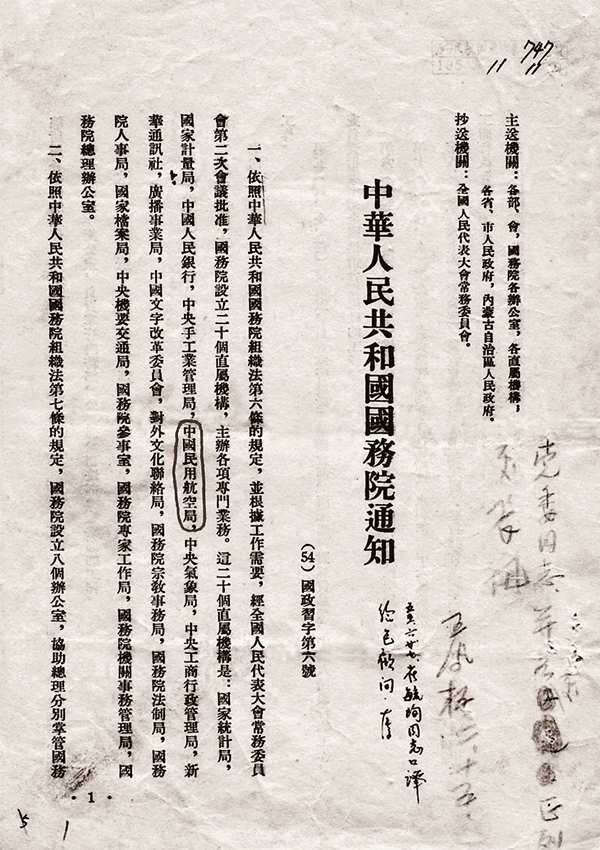 747
11 11
主送機關：各部、會，國務院各辦公室，各直屬機構，
各省、市人民政府，內蒙古自治區人民政府。
抄送機關：全國人民代表大會常務委員會。
中華人民共和國國務院通知
（54）國政習字第六號
一、依照中華人民共和國國務院組織法第六條的規定，並根據工作需要，經全國人民代表大會常務委員
會第二次會議批准，國務院設立二十個直屬機構，主辦各項專門業務。這二十個直屬機構是：國家統計局，
國家計量局，中國人民銀行，中央手工業管理局，中國民用航空局，中央氣象局，中央工商行政管理局，新
華通訊社，廣播事業局，中國文字改革委員會，對外文化聯絡局，國務院宗敎事務局，國務院法制局，國務
院人事局，國家檔案局，中央機要交通局，國務院參事室，國務院專家工作局，國務院機關事務管理局，國
務院總理辦公室。
二、依照中華人民共和國國務院組織法第七條的規定，國務院設立八個辦公室，協助總理分別掌管國務
· 1 ·